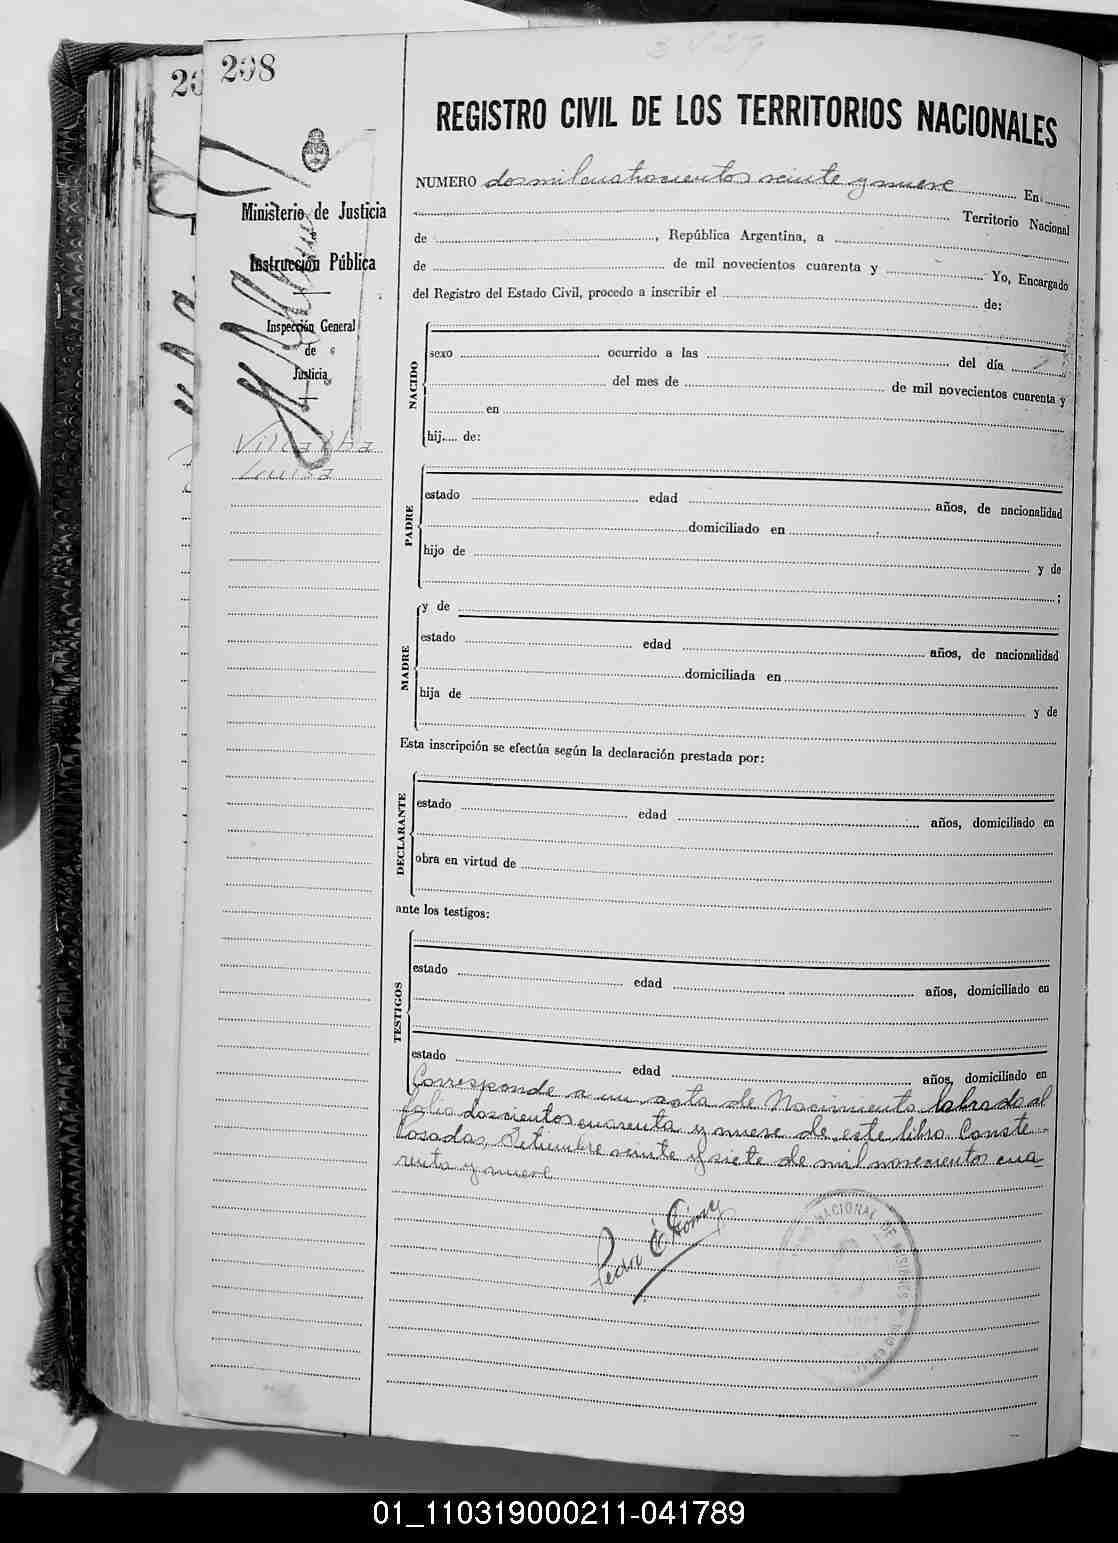 208
20
3 V 29
REGISTRO CIVIL DE LOS TERRITORIOS NACIONALES
Ministerio de Justicia
e
Instrucción Pública
Inspección General
de
Justicia
Villalba
Luisa
NUMERO dos mil cuatrocientos veinte y nueve En
Territorio Nacional
de , República Argentina, a
de de mil novecientos cuarenta y Yo, Encargado
del Registro del Estado Civil, procedo a inscribir el de:
NACIDO
sexo ocurrido a las del día
del mes de de mil novecientos cuarenta y
en
hij.... de:
PADRE
estado edad años, de nacionalidad
domiciliado en
hijo de y de
;
MADRE
y de
estado edad años, de nacionalidad
domiciliada en
hija de y de
Esta inscripción se efectúa según la declaración prestada por:
DECLARANTE
estado edad años, domiciliado en
obra en virtud de
ante los testigos:
TESTIGOS
estado edad años, domiciliado en
estado edad años, domiciliado en
Corresponde a un acta de Nacimiento labrada al
folio doscientos cuarenta y nueve de este libro. Conste.-
Posadas, Setiembre veinte y siete de mil novecientos cua-
renta y nueve
Pedro E. Gómez
NACIONAL DE MISIONES
01_110319000211-041789